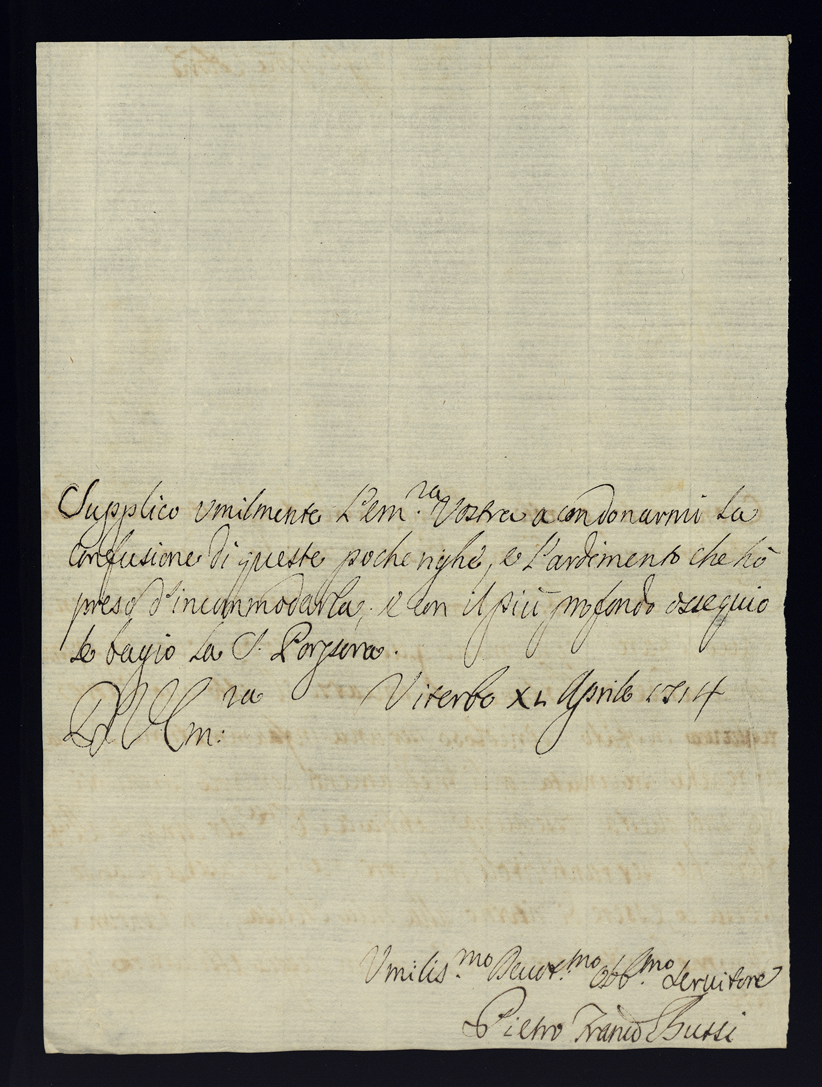 Supplico umilmente L'em.ra Vostra a condonarmi La
confusione di queste poche righe, e L'ardimento che hò
preso d'incommodarla, e con il più profondo ossequio
Le bagio La S. Porpora.
D. V. Em.ra Viterbo XI. Aprile 1714
Umilis.mo Deuot.mo Obb.mo Seruitore
Pietro Franc.o Bussi